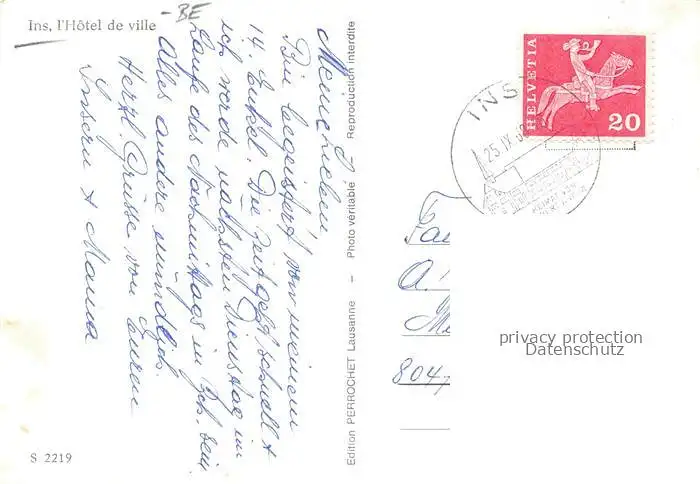 Ins, l'Hôtel de ville
- BE
Meine Lieben,
Bin begeistert von meinem
14. Enkel. Die Zeit geht schnell &
ich werde nächsten Dienstag im
Laufe des Nachmittags in Zch. sein.
Alles andere mündlich.
Herzl. Grüsse von Euren
Insern & Mama
S 2219
Edition PERROCHET Lausanne – Photo véritable – Reproduction interdite
HELVETIA
20
INS
25.IV.
Fa
A.
804
privacy protection
Datenschutz